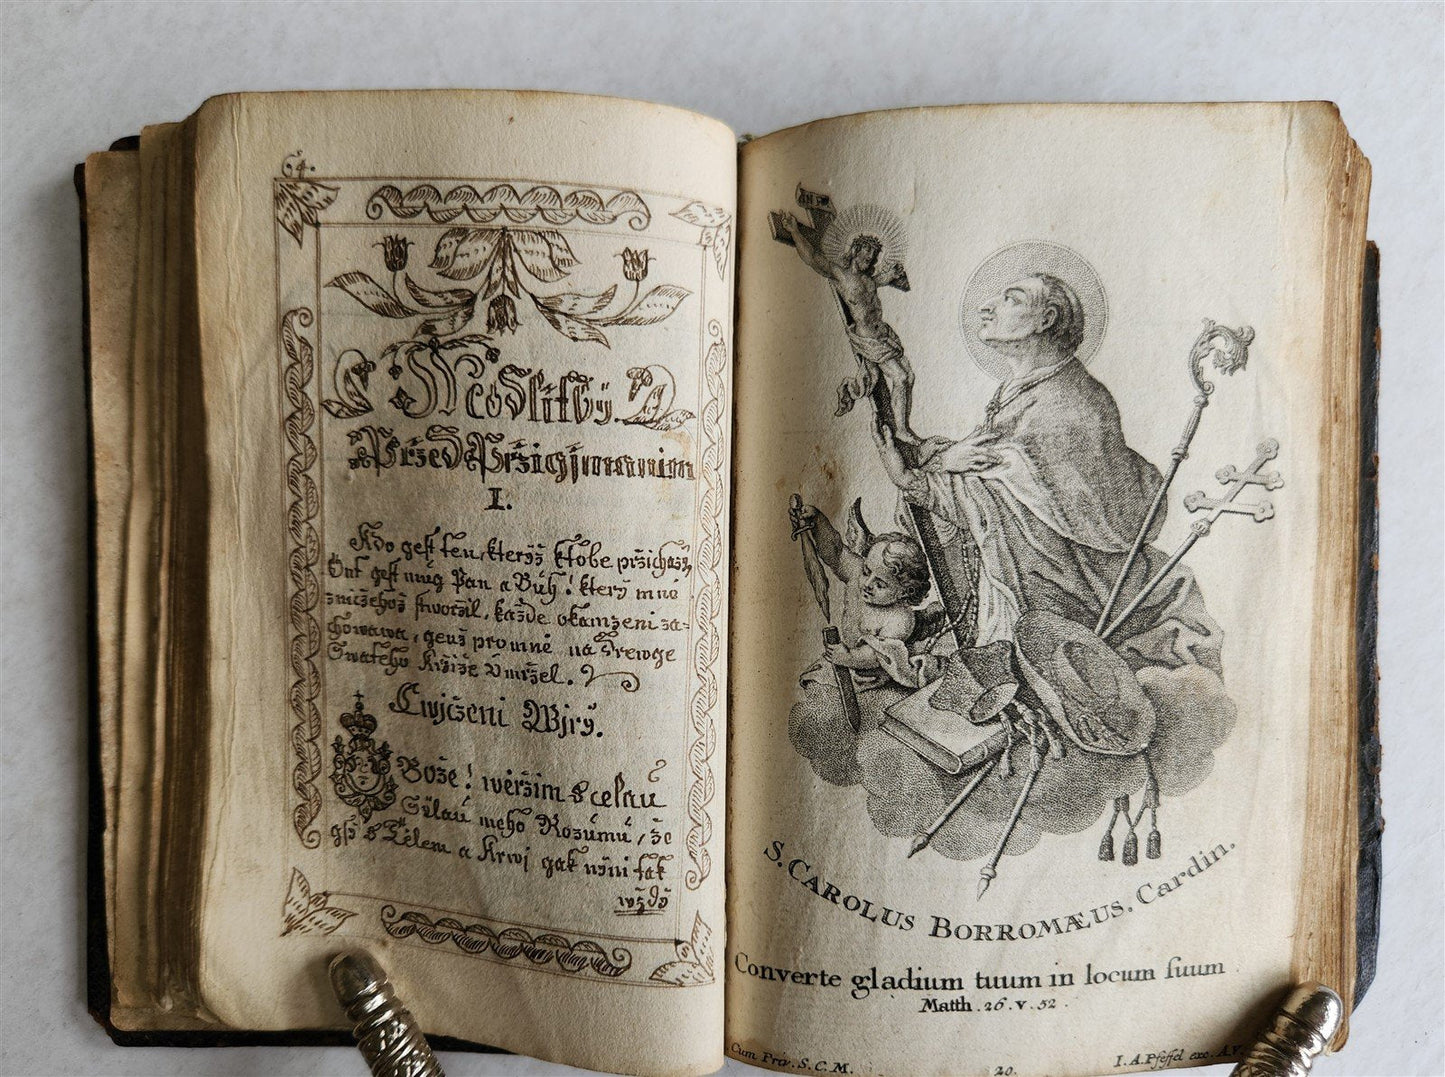 64.
Modlitby.
Pržed Pržigjmanim
I.
Kdo gest ten, kterýž k tobe pržichazý,
Ont gest můg Pan a Bůh! který mně
zničehož stworžil, každe okamženi za=
chowawa, genž pro mně na Dřewge
Swateho Kržiže Umržel.
Cwjčženi Wjrý.
Bože! wěržim s celau
Sýlau mého Rozůmů, že
gsy s Tělem a Krwj gak nýni tak
wždý
INRI
S. CAROLUS BORROMÆUS. Cardin.
Converte gladium tuum in locum suum
Matth. 26. v. 52.
Cum Priv. S. C. M.
20.
I. A. Pfeffel exc. A.V.